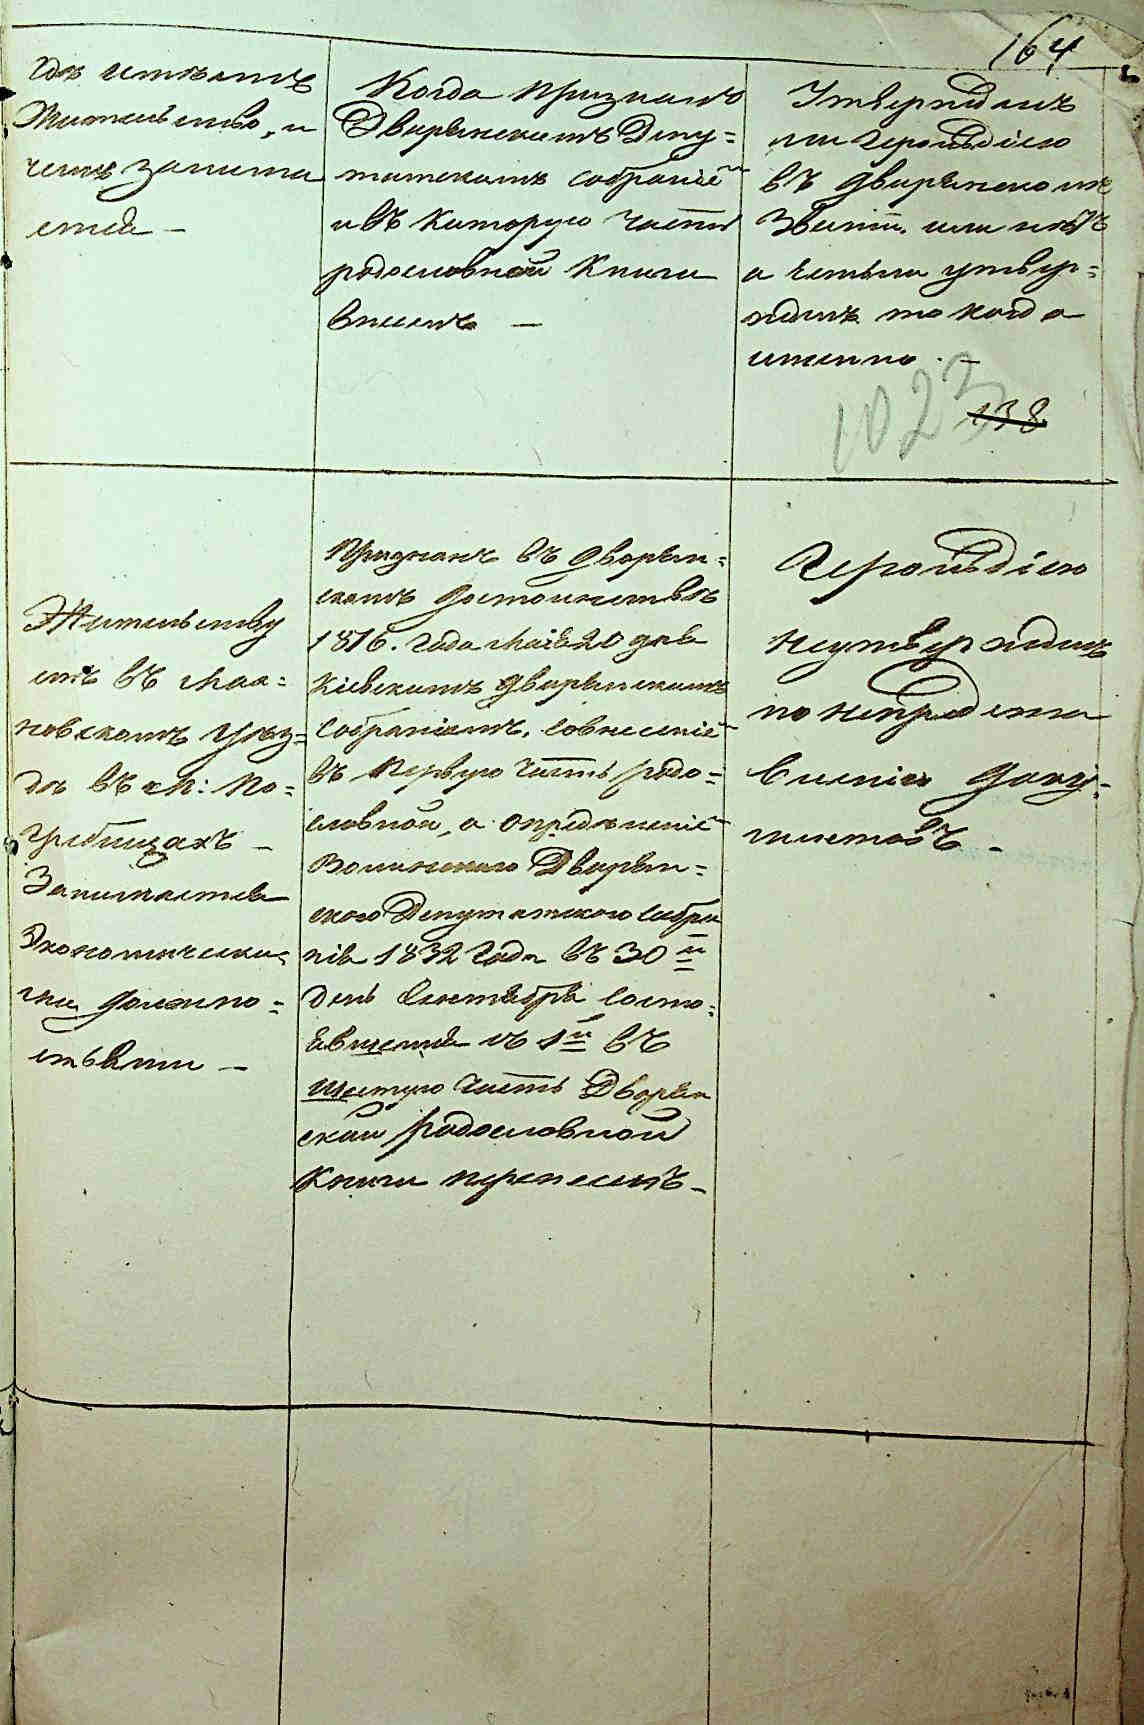 164
Где имѣетъ
Жительство, и
чемъ занима
ется –
Когда признанъ
Дворянскимъ Депу=
татскимъ собраніе̃
и въ которую часть
родословной книги
внесенъ –
Утвержденъ
ли Герольдіею
въ дворянскомъ
Званіи. или нѣтъ
а естьли утвер=
жденъ то когда
именно . –
1023
138
Жительству
етъ въ Мах=
новскомъ уѣз=
дѣ въ м: По=
гребищахъ –
Занимается
Экономически
ми должно=
стьями –
Признанъ въ дворян=
скомъ достоинствѣ
1816. года Маія 20 дня
Кіевскимъ дворянскимъ
собраніемъ, со внесеніе̃
въ первую часть родо=
словной, а опредѣленіе̃
Волынскаго Дворян=
скаго Депутатскаго собра
нія 1832 года въ 30 й
день Сентября состо=
явшемся съ 1й въ
шестую часть Дворян
ской родословной
книги перенесенъ –
Герольдіею
неутвержденъ
по непредста
вленію доку=
ментовъ –